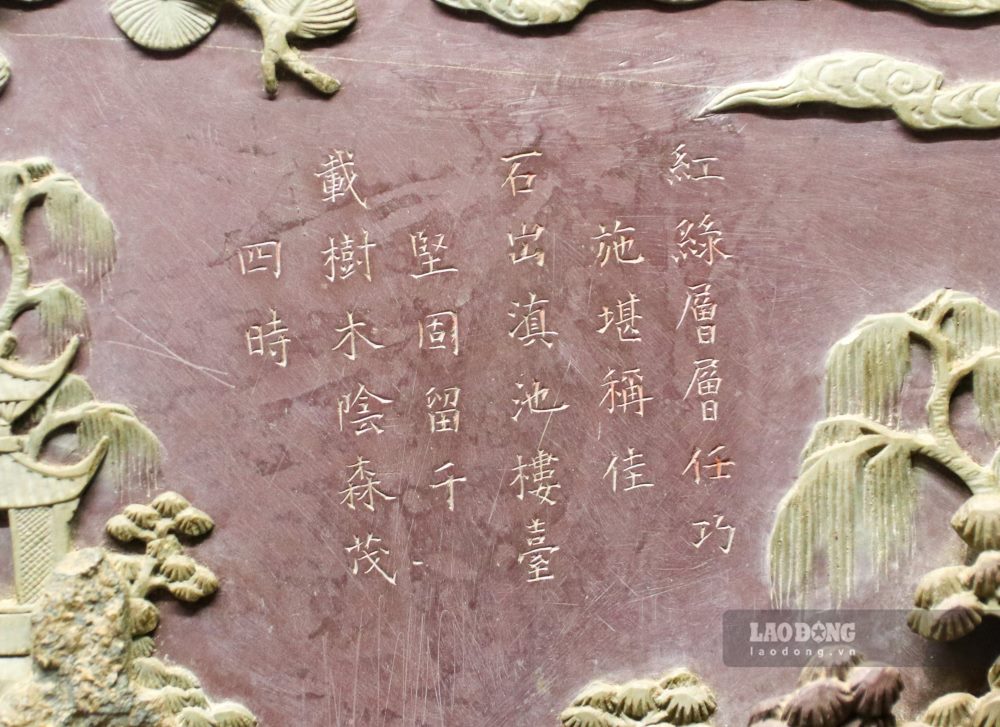 紅綠層層任巧
施堪稱佳
石出滇池樓臺
堅固留千
載樹木陰森茂
四時
LAO ĐỘNG
laodong.vn